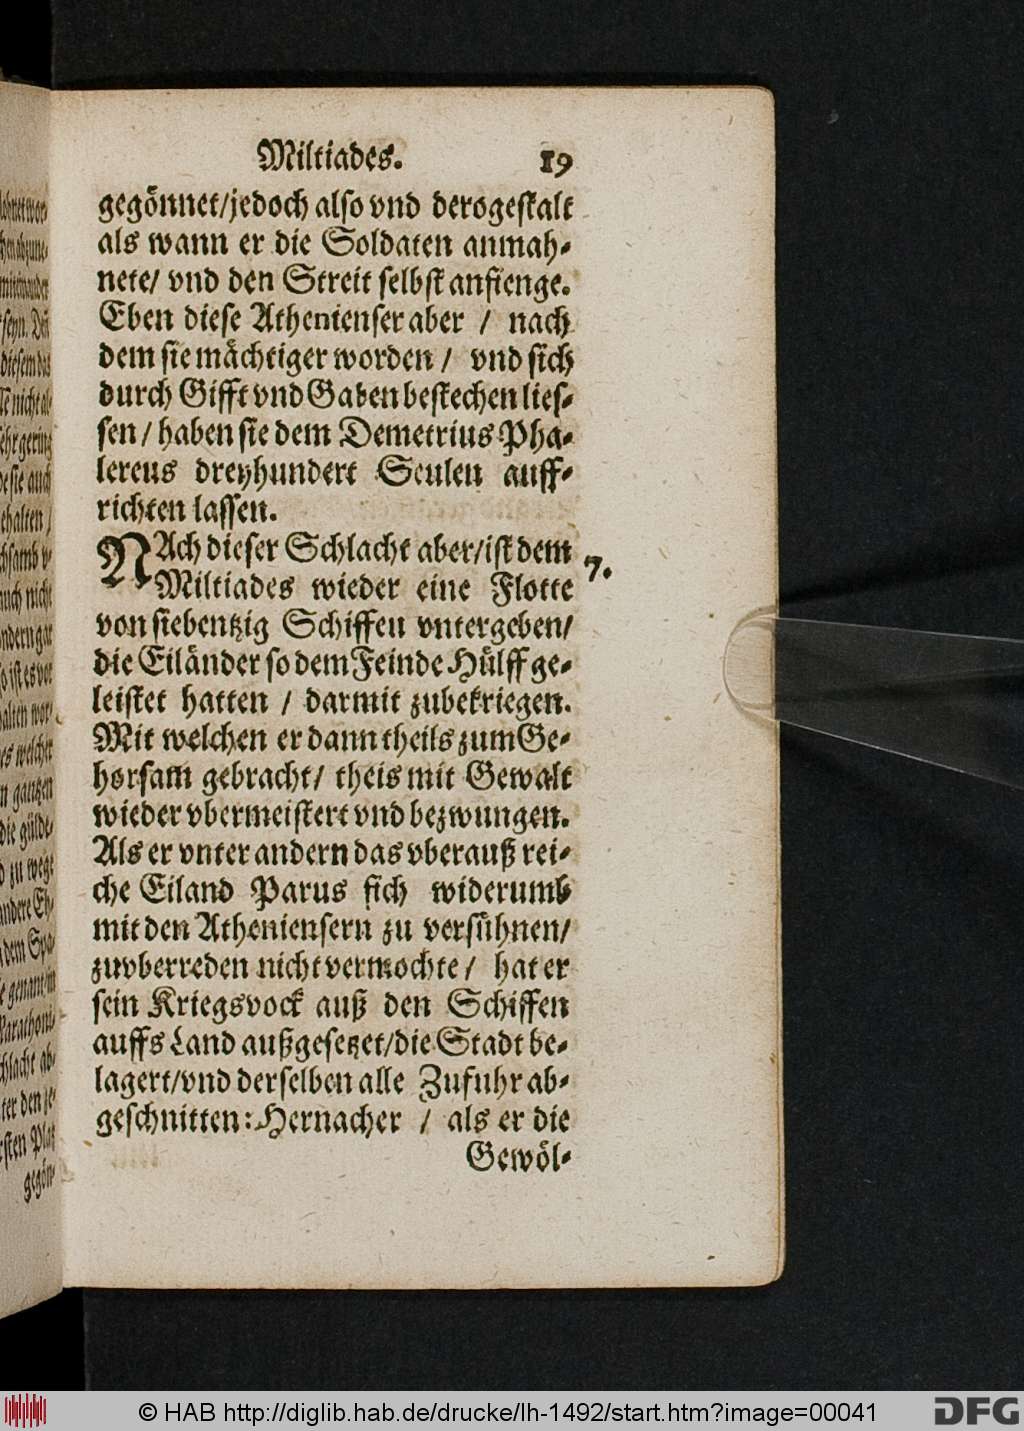 Miltiades. 19
gegönnet/jedoch also vnd derogestalt
als wann er die Soldaten anmah-
nete/ vnd den Streit selbst anfienge.
Eben diese Athenienser aber / nach
dem sie mächtiger worden / vnd sich
durch Gifft vnd Gaben bestechen lies-
sen / haben sie dem Demetrius Pha-
lereus dreyhundert Seulen auff-
richten lassen.
NAch dieser Schlacht aber/ist dem 7.
Miltiades wieder eine Flotte
von siebentzig Schiffen vntergeben/
die Eiländer so dem Feinde Hülff ge-
leistet hatten / darmit zubekriegen.
Mit welchen er dann theils zum Ge-
horsam gebracht/ theis mit Gewalt
wieder vbermeistert vnd bezwungen.
Als er vnter andern das vberauß rei-
che Eiland Parus sich widerumb
mit den Atheniensern zu versühnen/
zuvberreden nicht vermochte / hat er
sein Kriegsvock auß den Schiffen
auffs Land außgesetzet/die Stadt be-
lagert/vnd derselben alle Zufuhr ab-
geschnitten: Hernacher / als er die
Gewöl-
miteinander
seyn. Deñ
diesem das
nicht al-
sehr gering
sie auch
auch nicht
sondern gar
ist es ver
halten wor-
welcher
gantzen
die gülde-
zu wege
andere Eh-
dem
genant
Marathoni-
Schlacht ab-
den je-
ersten Platz
gegön-
© HAB http://diglib.hab.de/drucke/lh-1492/start.htm?image=00041
DFG